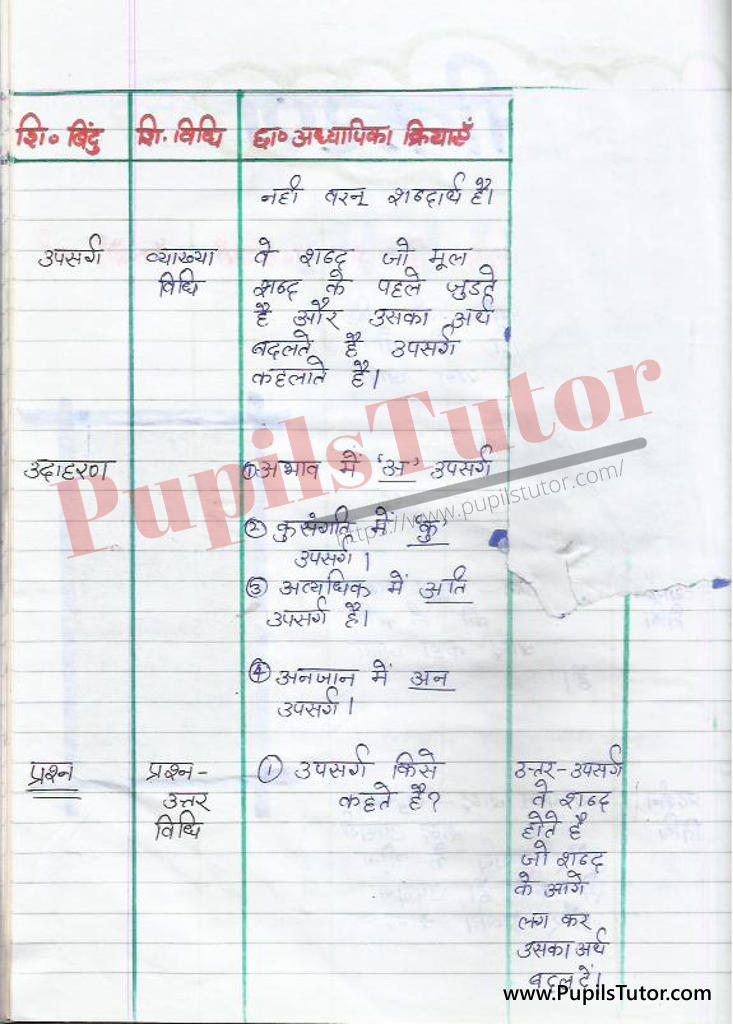 शि॰ बिंदु शि. विधि छा॰ अध्यापिका क्रियाएँ
नहीं वरन् शब्दार्थ है।
उपसर्ग व्याख्या वे शब्द जो मूल
विधि शब्द के पहले जुडते
है और उसका अर्थ
बदलते है उपसर्ग
कहलाते है।
PupilsTutor
उदाहरण ① अभाव में 'अ' उपसर्ग
https://www.pupilstutor.com/
② कुसंगति में 'कु'
उपसर्ग।
③ अत्यधिक में अति
उपसर्ग है।
④ अनजान में अन
उपसर्ग।
प्रश्न प्रश्न- ① उपसर्ग किसे उत्तर-उपसर्ग
उत्तर कहते है? वे शब्द
विधि होते है
जो शब्द
के आगे
लग कर
उसका अर्थ
बदल दें।
www.PupilsTutor.com